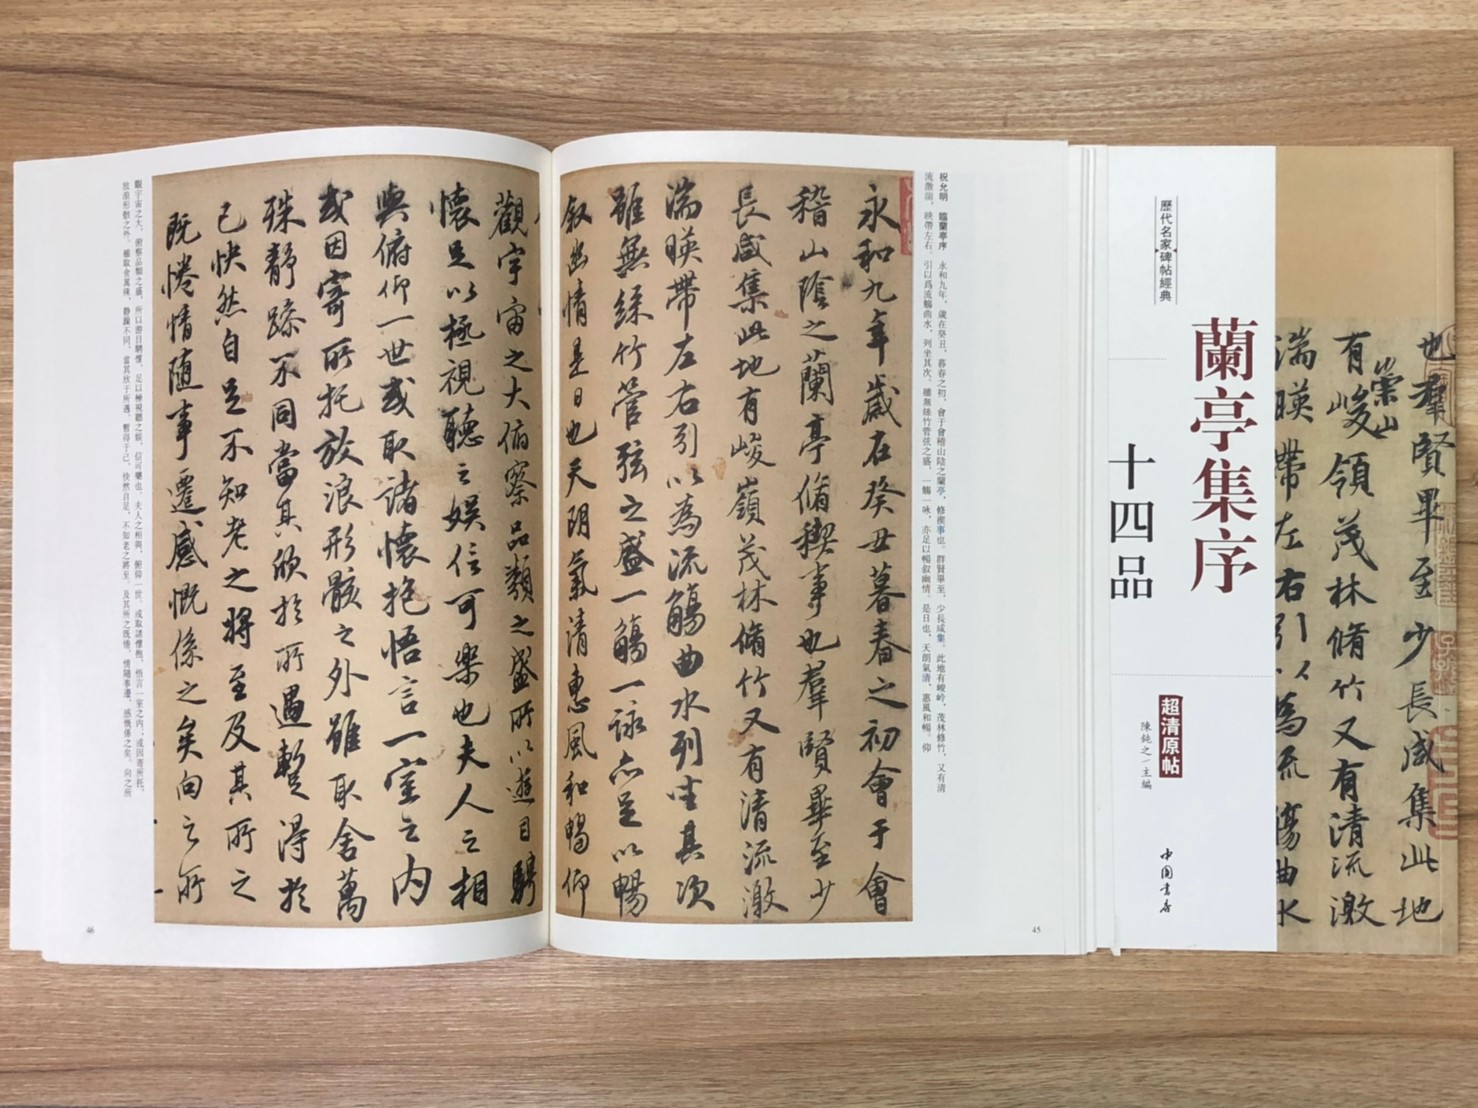 也羣賢畢至少長咸集此地
崇山
有峻領茂林脩竹又有清流激
湍暎帶左右引以為流觴曲水
歷代名家碑帖經典
蘭亭集序
十四品
超清原帖
陳鈍之 主編
中国书店
祝允明 臨蘭亭序 永和九年，歲在癸丑，暮春之初，會于會稽山陰之蘭亭，修禊事也。群賢畢至，少長咸集。此地有峻嶺，茂林修竹，又有清
流激湍，映帶左右。引以爲流觴曲水，列坐其次。雖無絲竹管弦之盛，一觴一咏，亦足以暢叙幽情。是日也，天朗氣清，惠風和暢。仰
永和九年歲在癸丑暮春之初會于會
稽山陰之蘭亭脩稧事也羣賢畢至少
長咸集此地有峻嶺茂林脩竹又有清流激
湍暎帶左右引以為流觴曲水列坐其次
雖無絲竹管弦之盛一觴一詠亦足以暢
叙幽情是日也天朗氣清惠風和暢仰
45
觀宇宙之大俯察品類之盛所以遊目騁
懷足以極視聽之娛信可樂也夫人之相
與俯仰一世或取諸懷抱悟言一室之內
或因寄所托放浪形骸之外雖取舍萬
殊靜躁不同當其欣於所遇蹔得於
己快然自足不知老之將至及其所之
既惓情隨事遷感慨係之矣向之所
觀宇宙之大，俯察品類之盛，所以游目騁懷，足以極視聽之娛，信可樂也。夫人之相與，俯仰一世，或取諸懷抱，悟言一室之内；或因寄所托，
放浪形骸之外。雖取舍萬殊，静躁不同，當其欣于所遇，暫得于己，快然自足，不知老之將至。及其所之既倦，情隨事遷，感慨係之矣。向之所
46